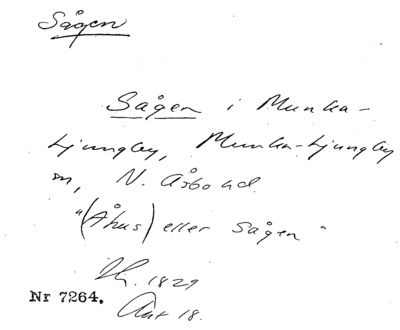 Sågen
Sågen i Munka-
Ljungby, Munka-Ljungby
sn, N. Åsbo hd.
"(Åhus) eller Sågen"
1829
Nr 7264. Akt 18.